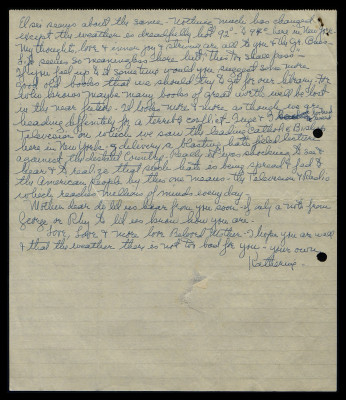 Else seems about the same. Nothing much has changed
except the weather is dreadfully hot 92° & 94° here in New York.
My thoughts, love & inner joy & are all to you
It all seems so meaningless here but this to share
If you feel up to it sometime would you suggest some more
good old books that we should try & get for our library. For
who knows maybe many books of great worth will be lost
in the near future. It looks more & more as though we are
heading definitely for a terrific conflict. Inge & I
Television on which we saw the leading Catholic Bishop
here in New York - & delivery a blasting hate filled
against the dictated Country. Really it was shocking to see &
hear & to realize that some hate is being spread & fed to
the American People by this one means - the Television & Radio
which reaches millions of minds every day.
Mother dear do let us hear from you soon if only a note from
George or to let us know how you are.
Love, Love & more love Beloved Mother - I hope you are well
& that the weather there is not too bad for you - your own
Katherine.